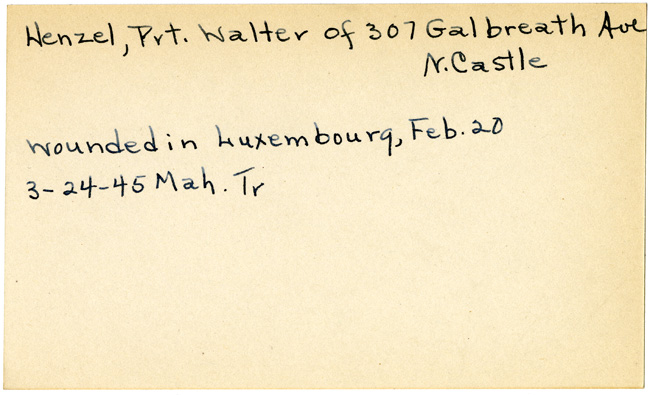 Henzel, Pvt. Walter of 307 Galbreath Ave
N. Castle
wounded in Luxembourg, Feb. 20
3-24-45 Mah. Tr